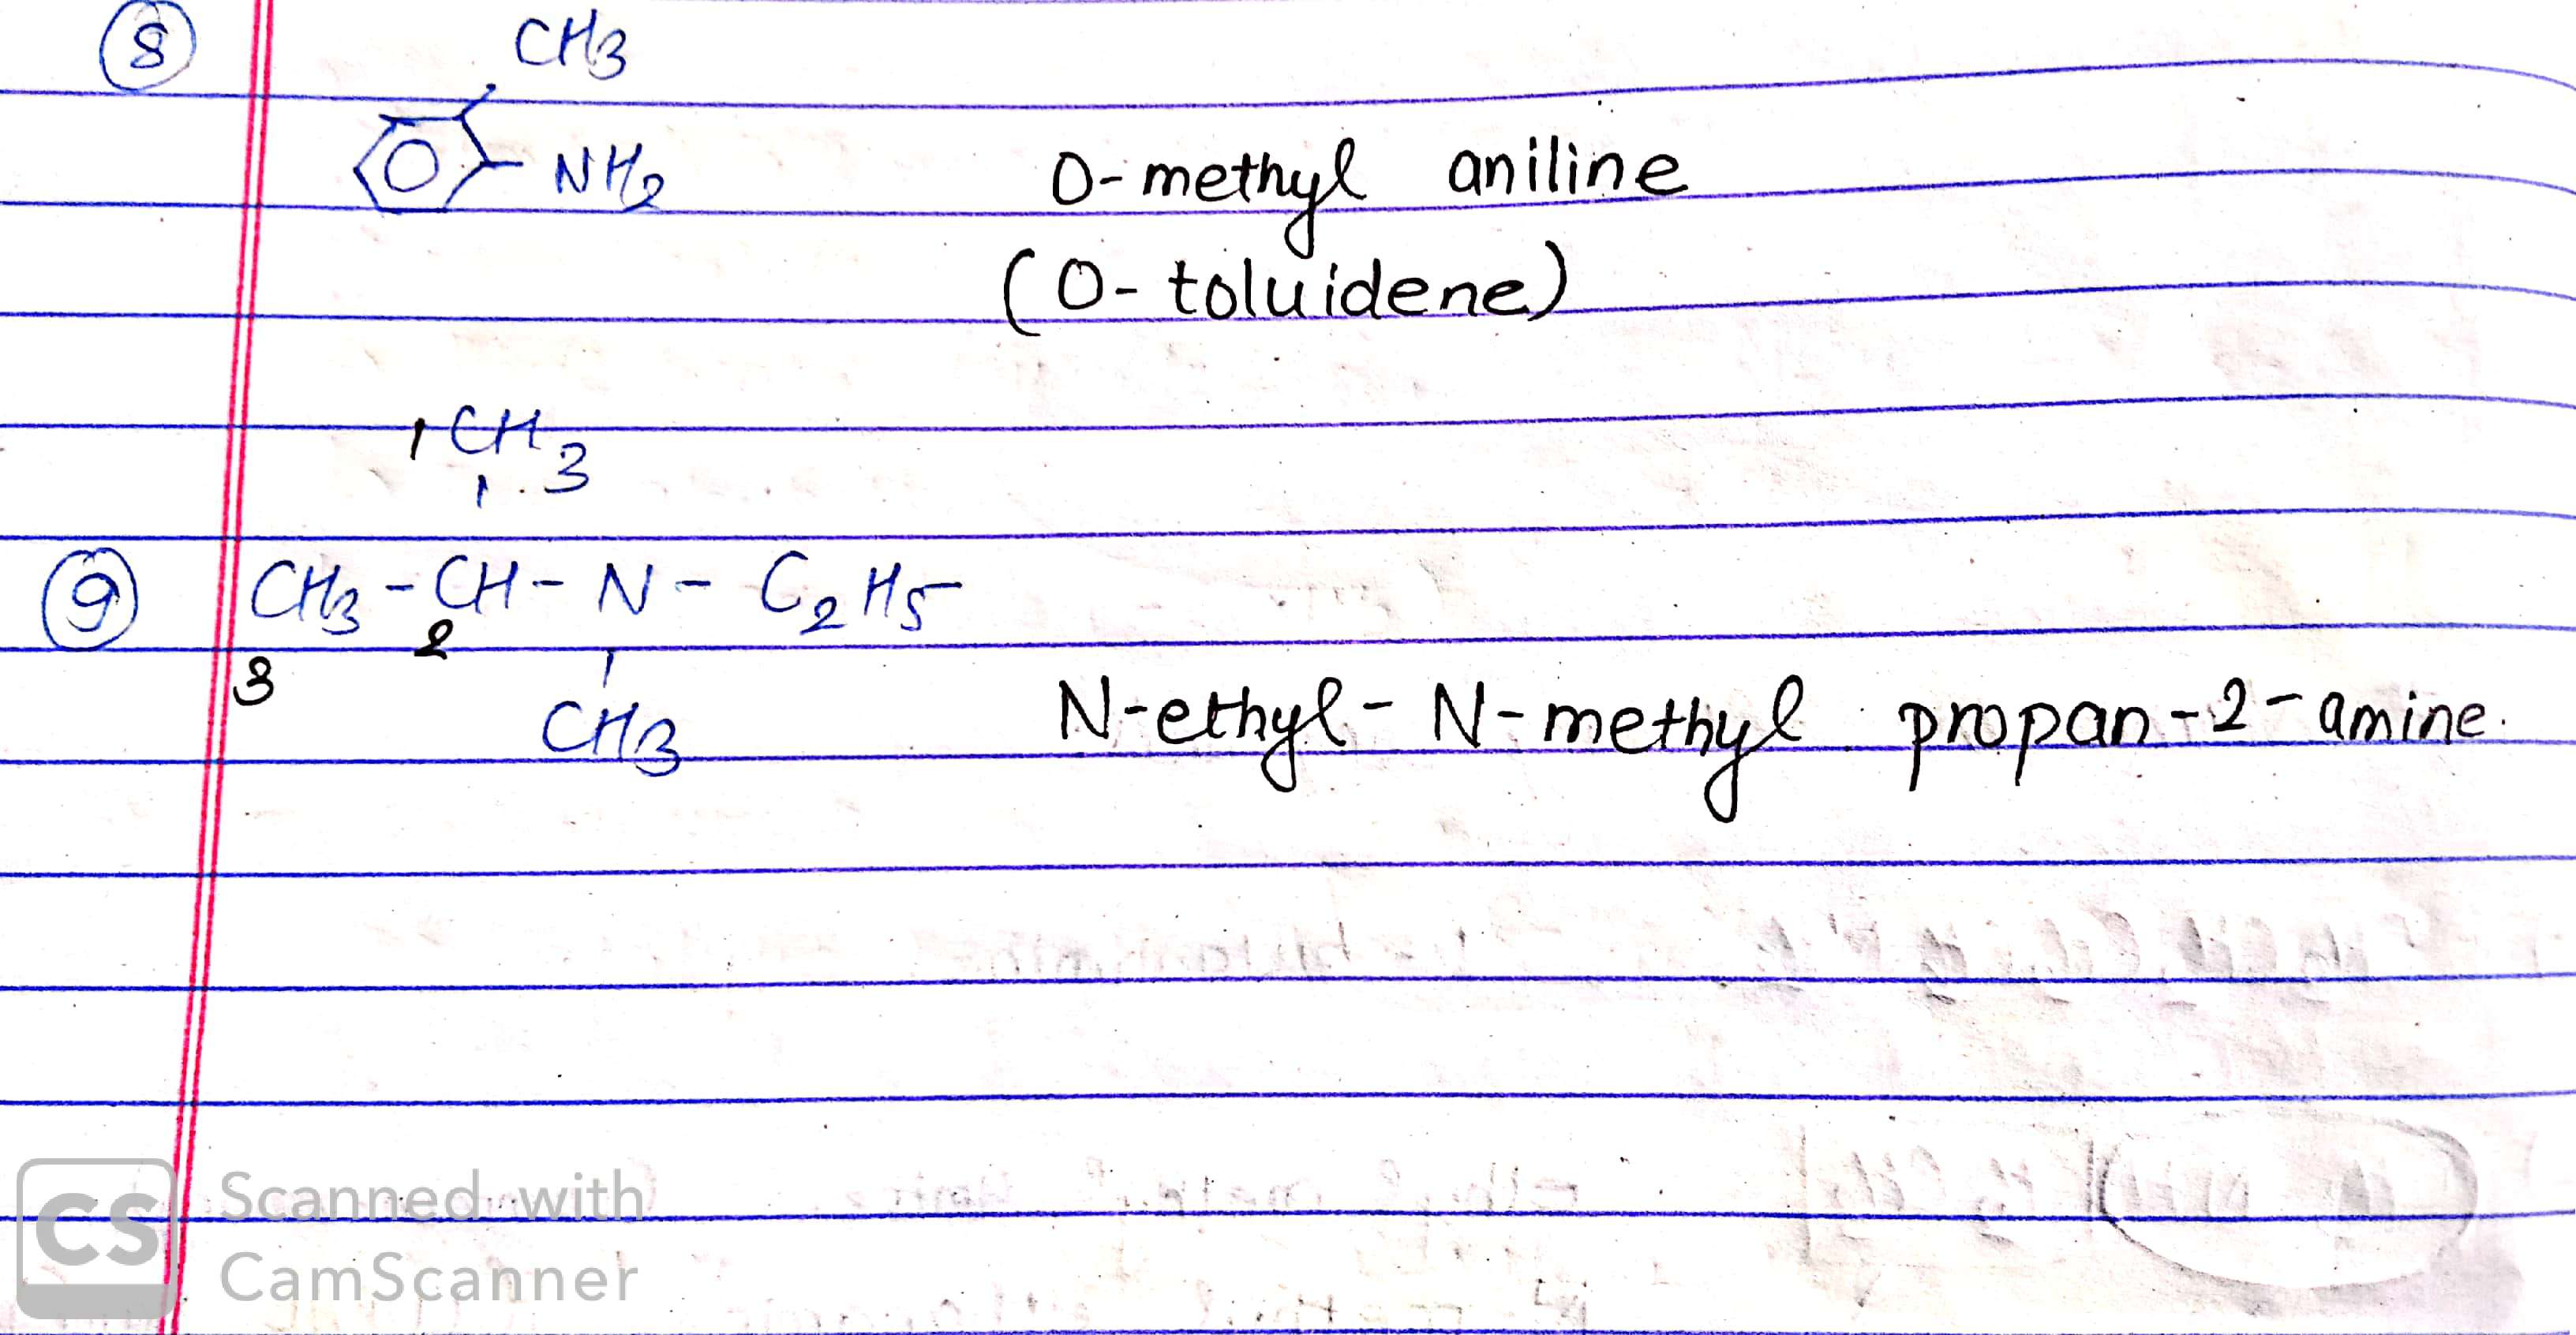 8
CH3
NH2
O-methyl aniline
(O-toluidene)
1 CH3
9 CH3 - CH - N - C2H5
3 2
CH3
N-ethyl-N-methyl propan-2-amine.
CS Scanned with
CamScanner